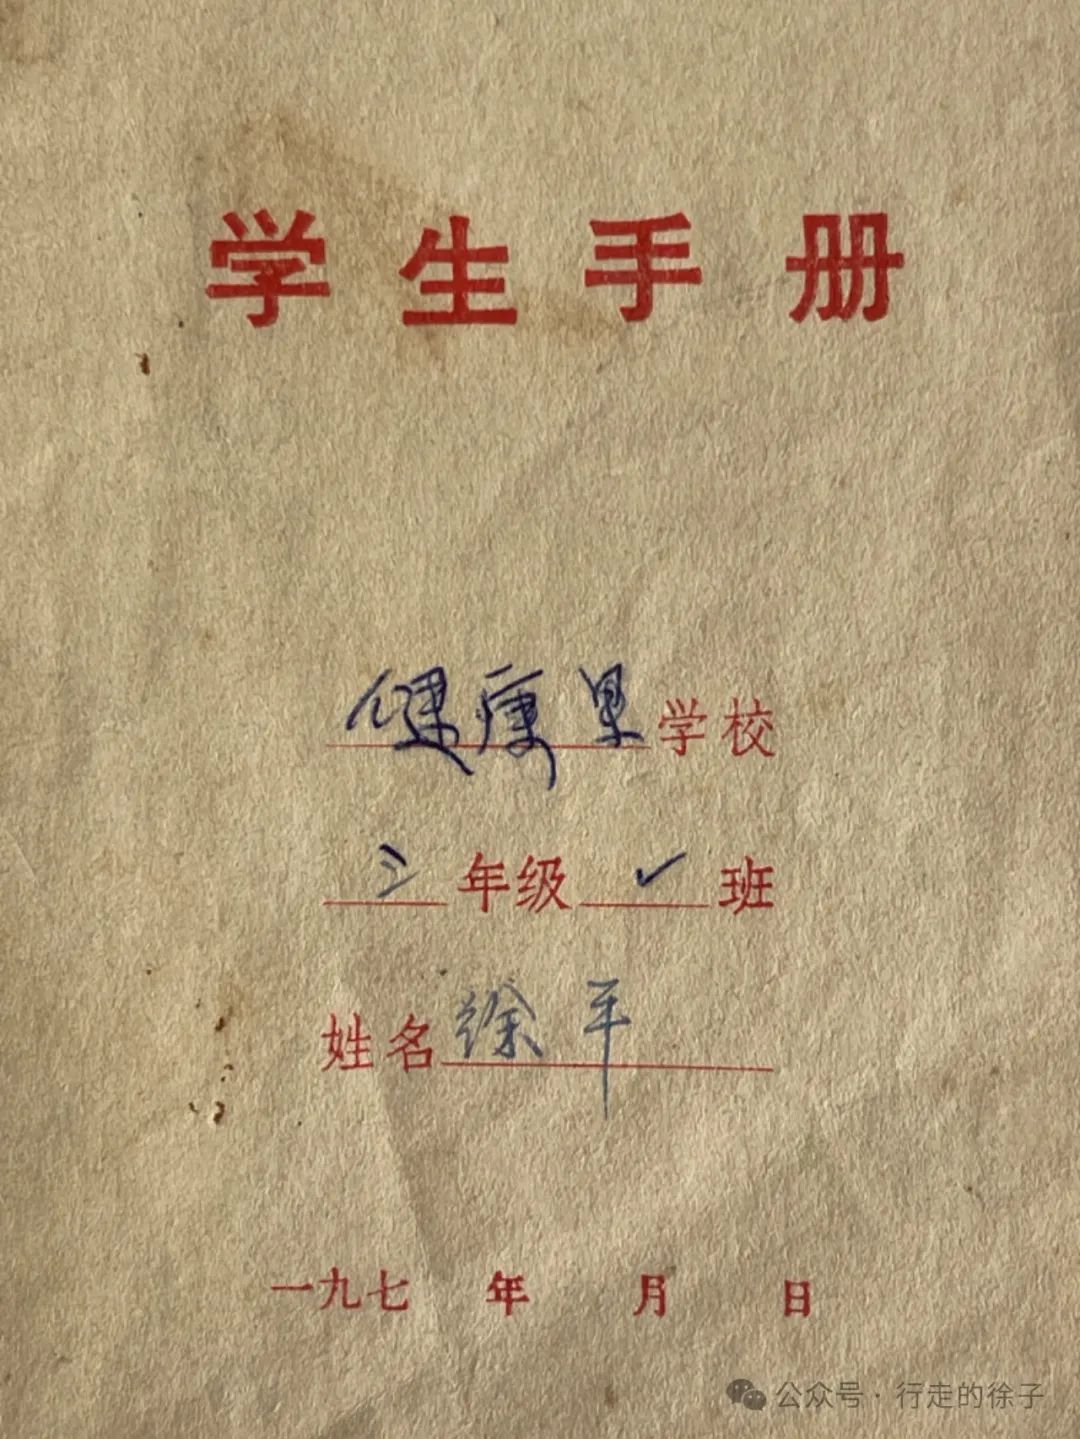 学生手册
健康里学校
三年级 班
姓名徐平
一九七 年 月 日
公众号·行走的徐子